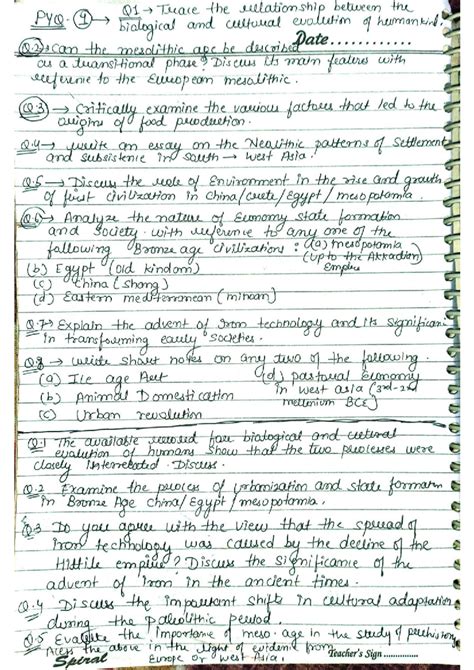 PYQ - 9 → Q1 → Trace the relationship between the
biological and cultural evolution of humankind.
Date.............
Q.2 → Can the mesolithic age be described
as a transitional phase? Discuss its main features with
reference to the European mesolithic.
Q.3 → Critically examine the various factors that led to the
origins of food production.
Q.4 → write an essay on the Neolithic patterns of Settlement
and subsistence in south → West Asia.
Q.5 → Discuss the role of Environment in the rise and growth
of first civilization in China/Crete/Egypt/mesopotamia.
Q.6 → Analyze the nature of Economy state formation
and society with reference to any one of the
following Bronze age civilizations : (a) mesopotamia
(up to the Akkadian)
Empire
(b) Egypt (old kindom)
(c) China (Shang)
(d) Eastern mediterranean (minoan)
Q.7 → Explain the advent of Iron technology and its significan
in transforming early societies.
Q.8 → write short notes on any two of the following.
(a) Ice age Art (d) pastoral Economy
in west asia (3rd-2nd
(b) Animal Domestication millenium BCE)
(c) Urban revolution
Q.1 The available record for biological and cultural
evolution of humans show that the two processes were
closely interrelated. Discuss.
Q.2 Examine the process of urbanization and state formation
in Bronze Age China/Egypt/mesopotamia.
Q.3 Do you agree with the view that the spread of
iron technology was caused by the decline of the
Hittile empire? Discuss the significance of the
advent of iron in the ancient times.
Q.4 Discuss the important shifts in cultural adaptation
during the paleolithic period.
Q.5 Evaluate the importance of meso. age in the study of prehistory
Acess the above in the light of evidence from
Europe or West Asia.
Spiral
Teacher's Sign ...............